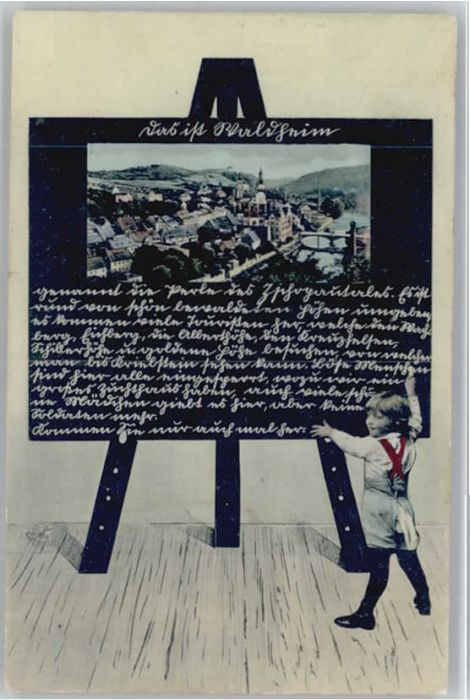 Das ist Waldheim
genannt die Perle des Zschopautales. Es ist
rund von schön bewaldeten Höhen umgeben,
es kommen viele Touristen her, welche den Wach-
berg, Eichberg, die Alberthöhe, den Kreuzfelsen,
Schillerhöhe u. goldene Höhe besuchen, von welcher
man bis Kriebstein sehen kann. Böse Menschen
sind hier alle eingesperrt, wozu wir ein
großes Zuchthaus haben, auch viele schö-
ne Mädchen giebt es hier, aber keine
Soldaten mehr.
Kommen Sie nur auch mal her.